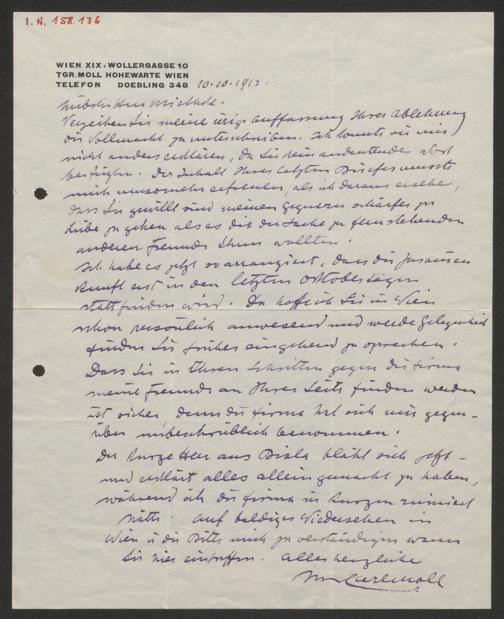 I.N. 158.136
WIEN XIX, WOLLERGASSE 10
TGR. MOLL HOHEWARTE WIEN
TELEFON DOEBLING 348 10.10.1913.
Verzeihen Sie meine irrige Auffassung Ihrer Ablehnung
die Vollmacht zu unterschreiben. Ich konnte sie mir
nicht anders erklären, da Sie kein andeutendes Wort
beifügten. Der Inhalt Ihres letzten Briefes musste
mich umsomehr erfreuen, als ich daraus ersehe,
dass Sie gewillt sind meinen Gegnern schärfer zu
Leibe zu gehen als es die der Sache zu fernstehenden
anderen Freunde thun wollten.
Ich habe es jetzt so arrangiert, dass die Zusammen
kunft erst in den letzten Oktobertagen
stattfinden wird. Da hoffe ich Sie in Wien
schon persönlich anwesend und werde Gelegenheit
finden Sie früher eingehend zu sprechen.
Dass Sie in Ihren Schritten gegen die Firma
meine Freunde an Ihrer Seite finden werden
ist sicher denn die Firma hat sich mir gegen-
über unbeschreiblich benommen.
Der kurze Herr aus Biala bläht sich jetzt
und erklärt alles allein gemacht zu haben,
während ich die Firma in kurzem ruiniert
hätte. Auf baldiges Wiedersehen in
Wien u die Bitte mich zu verständigen wann
Sie hier eintreffen. Alles herzliche
Carl Moll